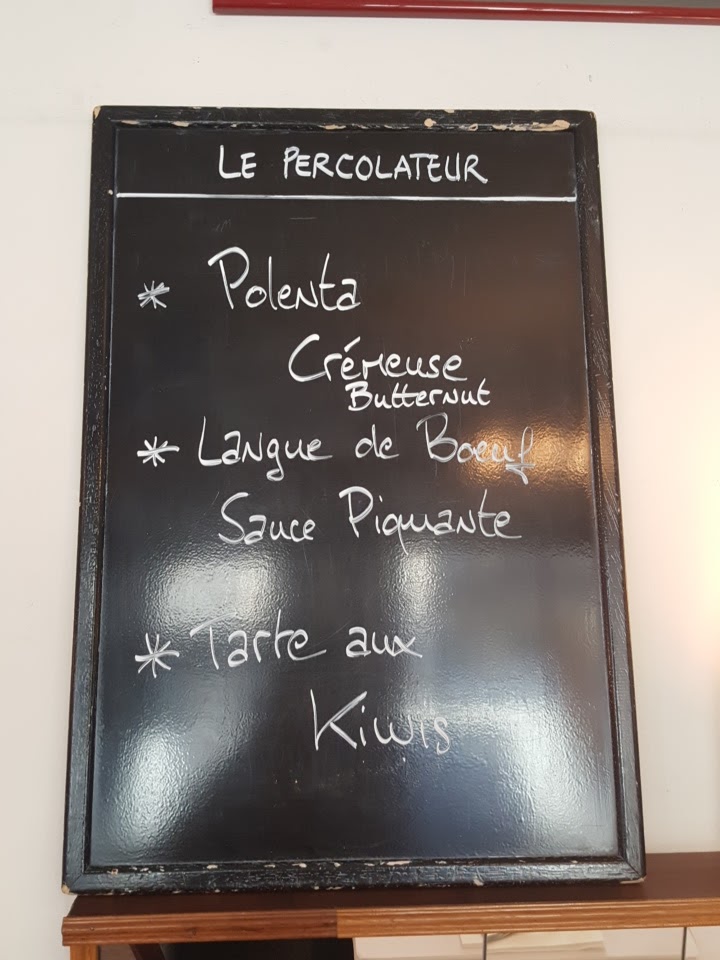 LE PERCOLATEUR
* Polenta
Crémeuse
Butternut
* Langue de Boeuf
Sauce Piquante
* Tarte aux
Kiwis